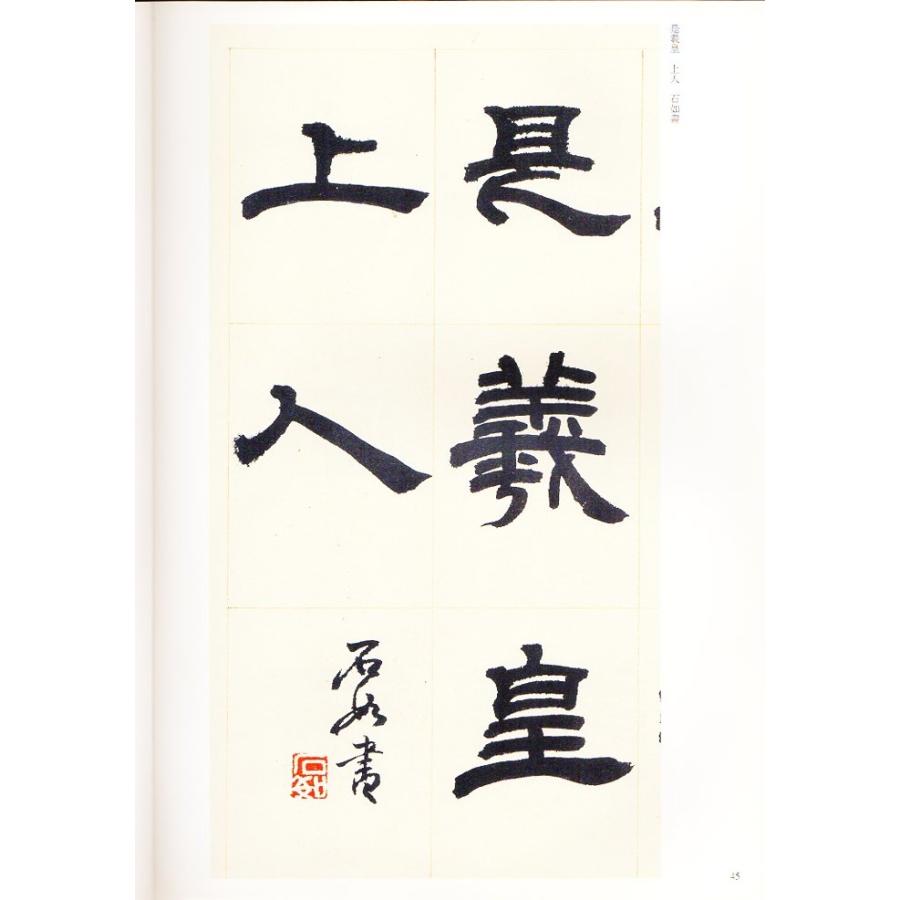 是羲皇 上人 石如書
是羲皇
上人
石如書
石如
45